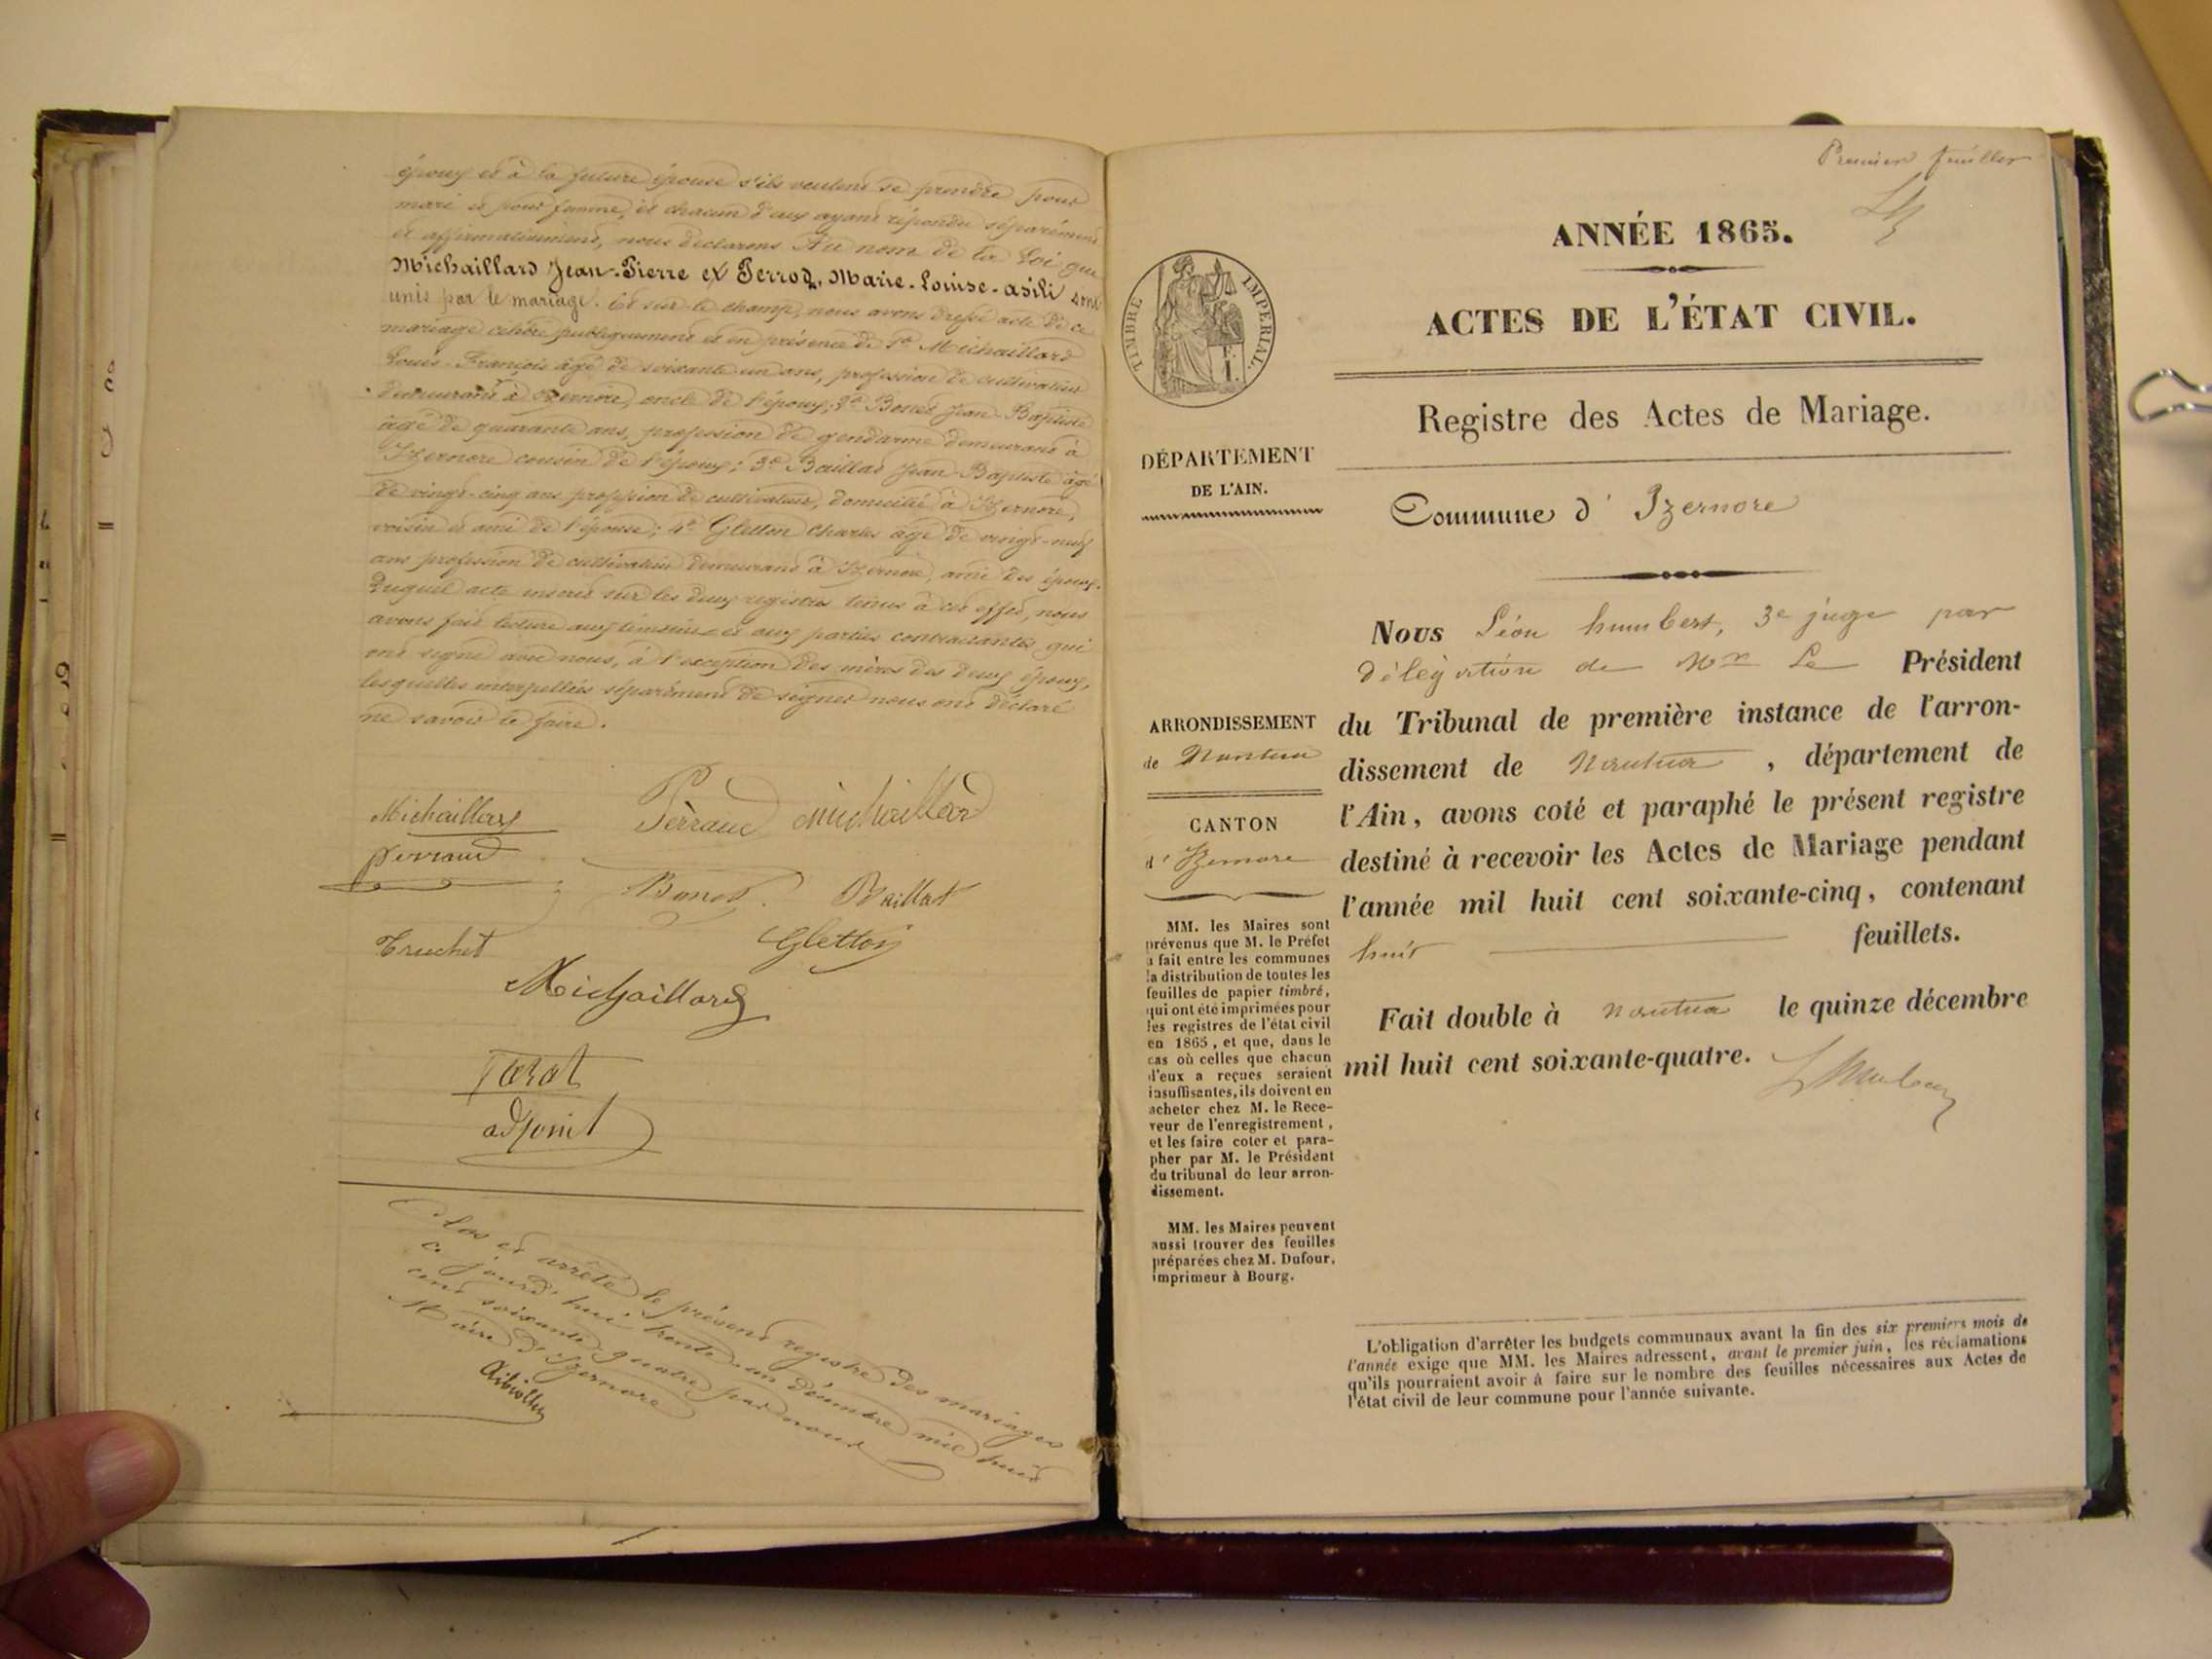 époux et à la future épouse s'ils veulent se prendre pour
mari et pour femme, et chacun d'eux ayant répondu séparément
et affirmativement, nous déclarons Au nom de la Loi que
Michaillard Jean-Pierre et Perrod, Marie-Louise-asili sont
unis par le mariage. Et sur le champ, nous avons dressé acte de ce
mariage célébré publiquement et en présence de 1º Michaillard
Louis-François âgé de soixante un ans, profession de cultivateur
demeurant à Izernore, oncle de l'époux; 2º Bonet Jean-Baptiste
âgé de quarante ans, profession de gendarme demeurant à
Izernore cousin de l'époux; 3º Baillat Jean-Baptiste âgé
de vingt-cinq ans profession de cultivateur, domicilié à Izernore,
voisin et ami de l'épouse; 4º Gletton Charles âgé de vingt-neuf
ans profession de cultivateur demeurant à Izernore, ami des époux.
Duquel acte inscrit sur les deux registres tenus à cet effet, nous
avons fait lecture aux témoins et aux parties contractantes qui
ont signé avec nous, à l'exception des mères des deux époux,
lesquelles interpellées séparément de signer nous ont déclaré
ne savoir le faire.
Michaillard Perraud Michaillard
perraud
Bonet Baillat
Truchet Gletton
Michaillard
adjoint
Clos et arrêté le présent registre des mariages
ce jourd'hui trente-un décembre mil huit
cent soixante quatre par nous
Maire d'Izernore
Premier feuillet
ANNÉE 1865.
ACTES DE L'ÉTAT CIVIL.
TIMBRE IMPÉRIAL.
Registre des Actes de Mariage.
DÉPARTEMENT
DE L'AIN.
Commune d' Izernore
Nous Léon humbert, 3e juge par
délégation de Mr Le Président
du Tribunal de première instance de l'arron-
dissement de Nantua, département de
l'Ain, avons coté et paraphé le présent registre
destiné à recevoir les Actes de Mariage pendant
l'année mil huit cent soixante-cinq, contenant
huit feuillets.
Fait double à Nantua le quinze décembre
mil huit cent soixante-quatre.
ARRONDISSEMENT
de Nantua
CANTON
d' Izernore
MM. les Maires sont
prévenus que M. le Préfet
a fait entre les communes
la distribution de toutes les
feuilles de papier timbré,
qui ont été imprimées pour
les registres de l'état civil
en 1865, et que, dans le
cas où celles que chacun
d'eux a reçues seraient
insuffisantes, ils doivent en
acheter chez M. le Rece-
veur de l'enregistrement,
et les faire coter et para-
pher par M. le Président
du tribunal de leur arron-
dissement.
MM. les Maires peuvent
aussi trouver des feuilles
préparées chez M. Dufour,
imprimeur à Bourg.
L'obligation d'arrêter les budgets communaux avant la fin des six premiers mois de
l'année exige que MM. les Maires adressent, avant le premier juin, les réclamations
qu'ils pourraient avoir à faire sur le nombre des feuilles nécessaires aux Actes de
l'état civil de leur commune pour l'année suivante.